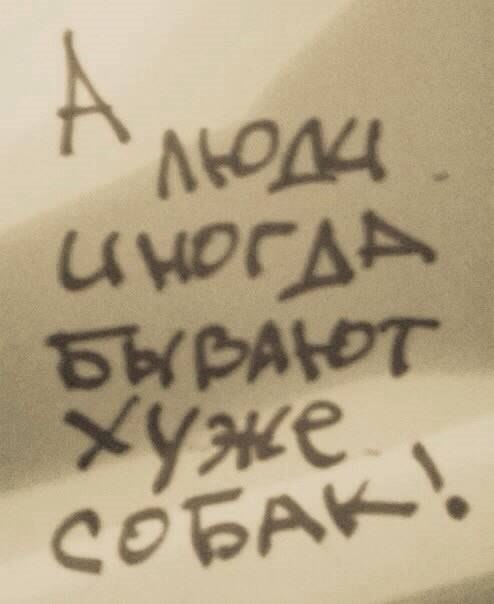 А
ЛЮДИ
ИНОГДА
БЫВАЮТ
ХУЖЕ
СОБАК!